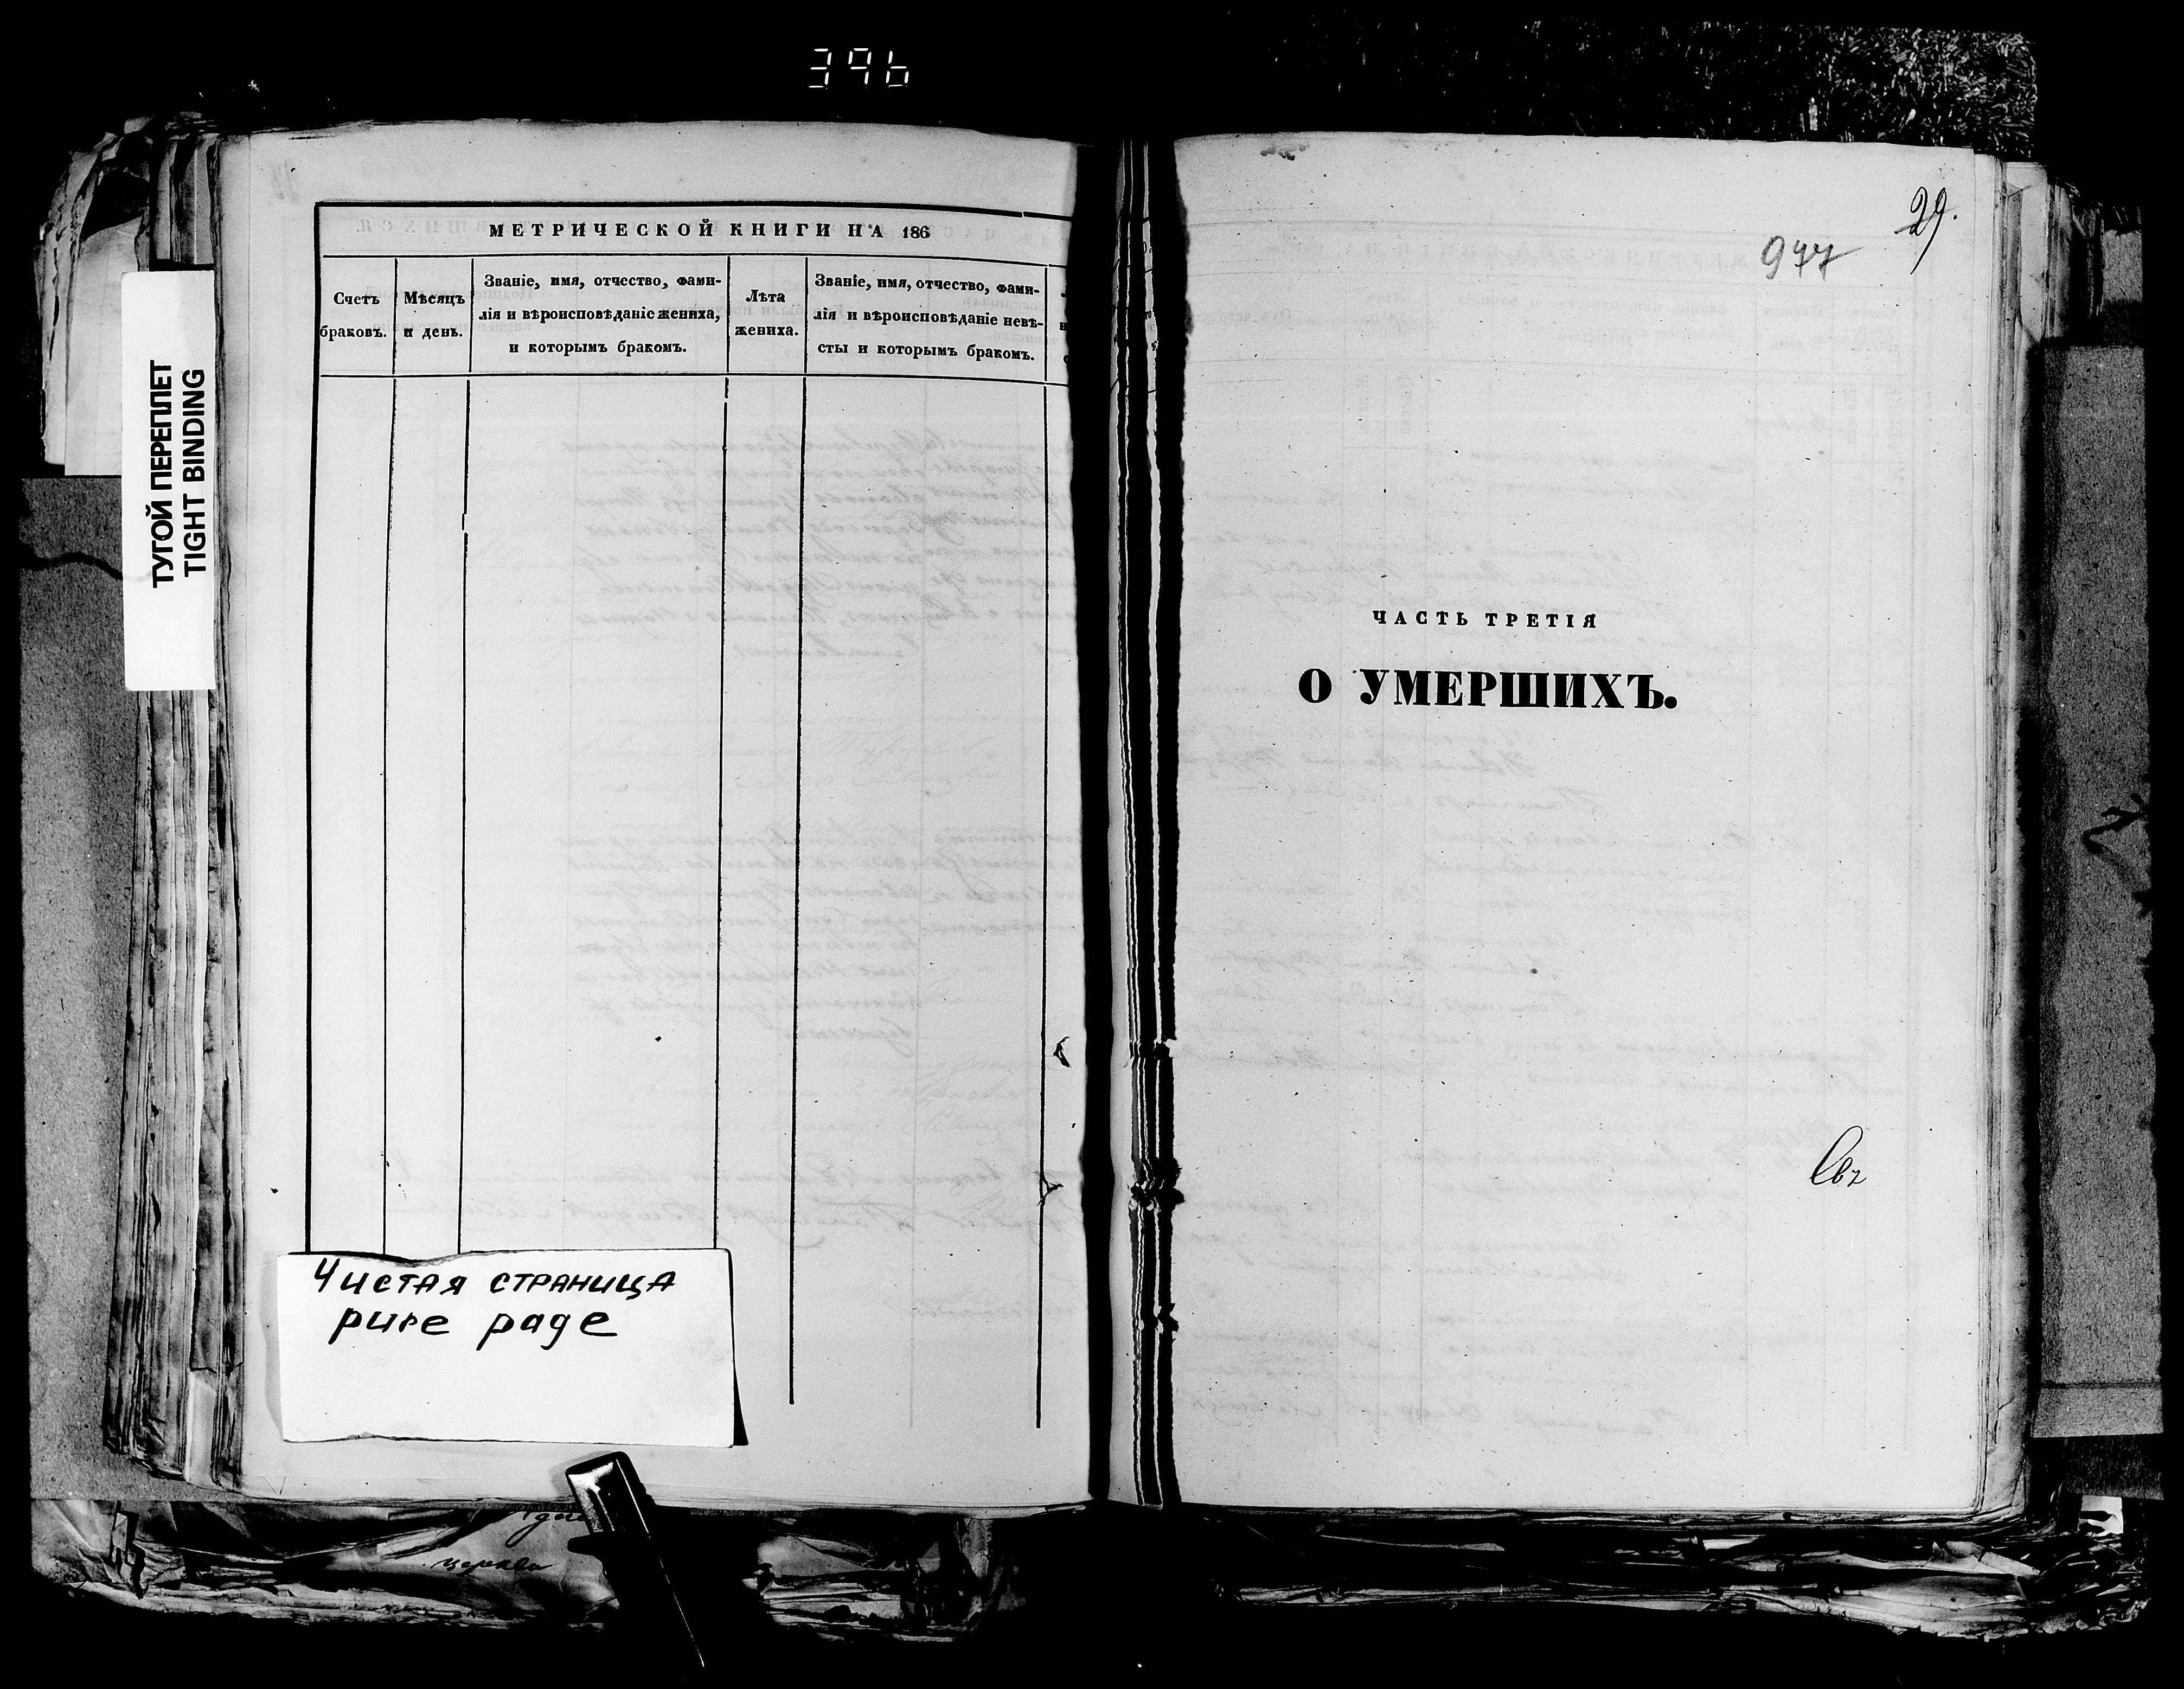 396
ТУГОЙ ПЕРЕПЛЕТ
TIGHT BINDING
МЕТРИЧЕСКОЙ КНИГИ НА 186
Счетъ
браковъ.
Мѣсяцъ
и день.
Званіе, имя, отчество, фами-
лія и вѣроисповѣданіе жениха,
и которымъ бракомъ.
Лѣта
жениха.
Званіе, имя, отчество, фами-
лія и вѣроисповѣданіе невѣ-
сты и которымъ бракомъ.
Чистая страница
pure page
церкви
29.
977
ЧАСТЬ ТРЕТІЯ
О УМЕРШИХЪ.